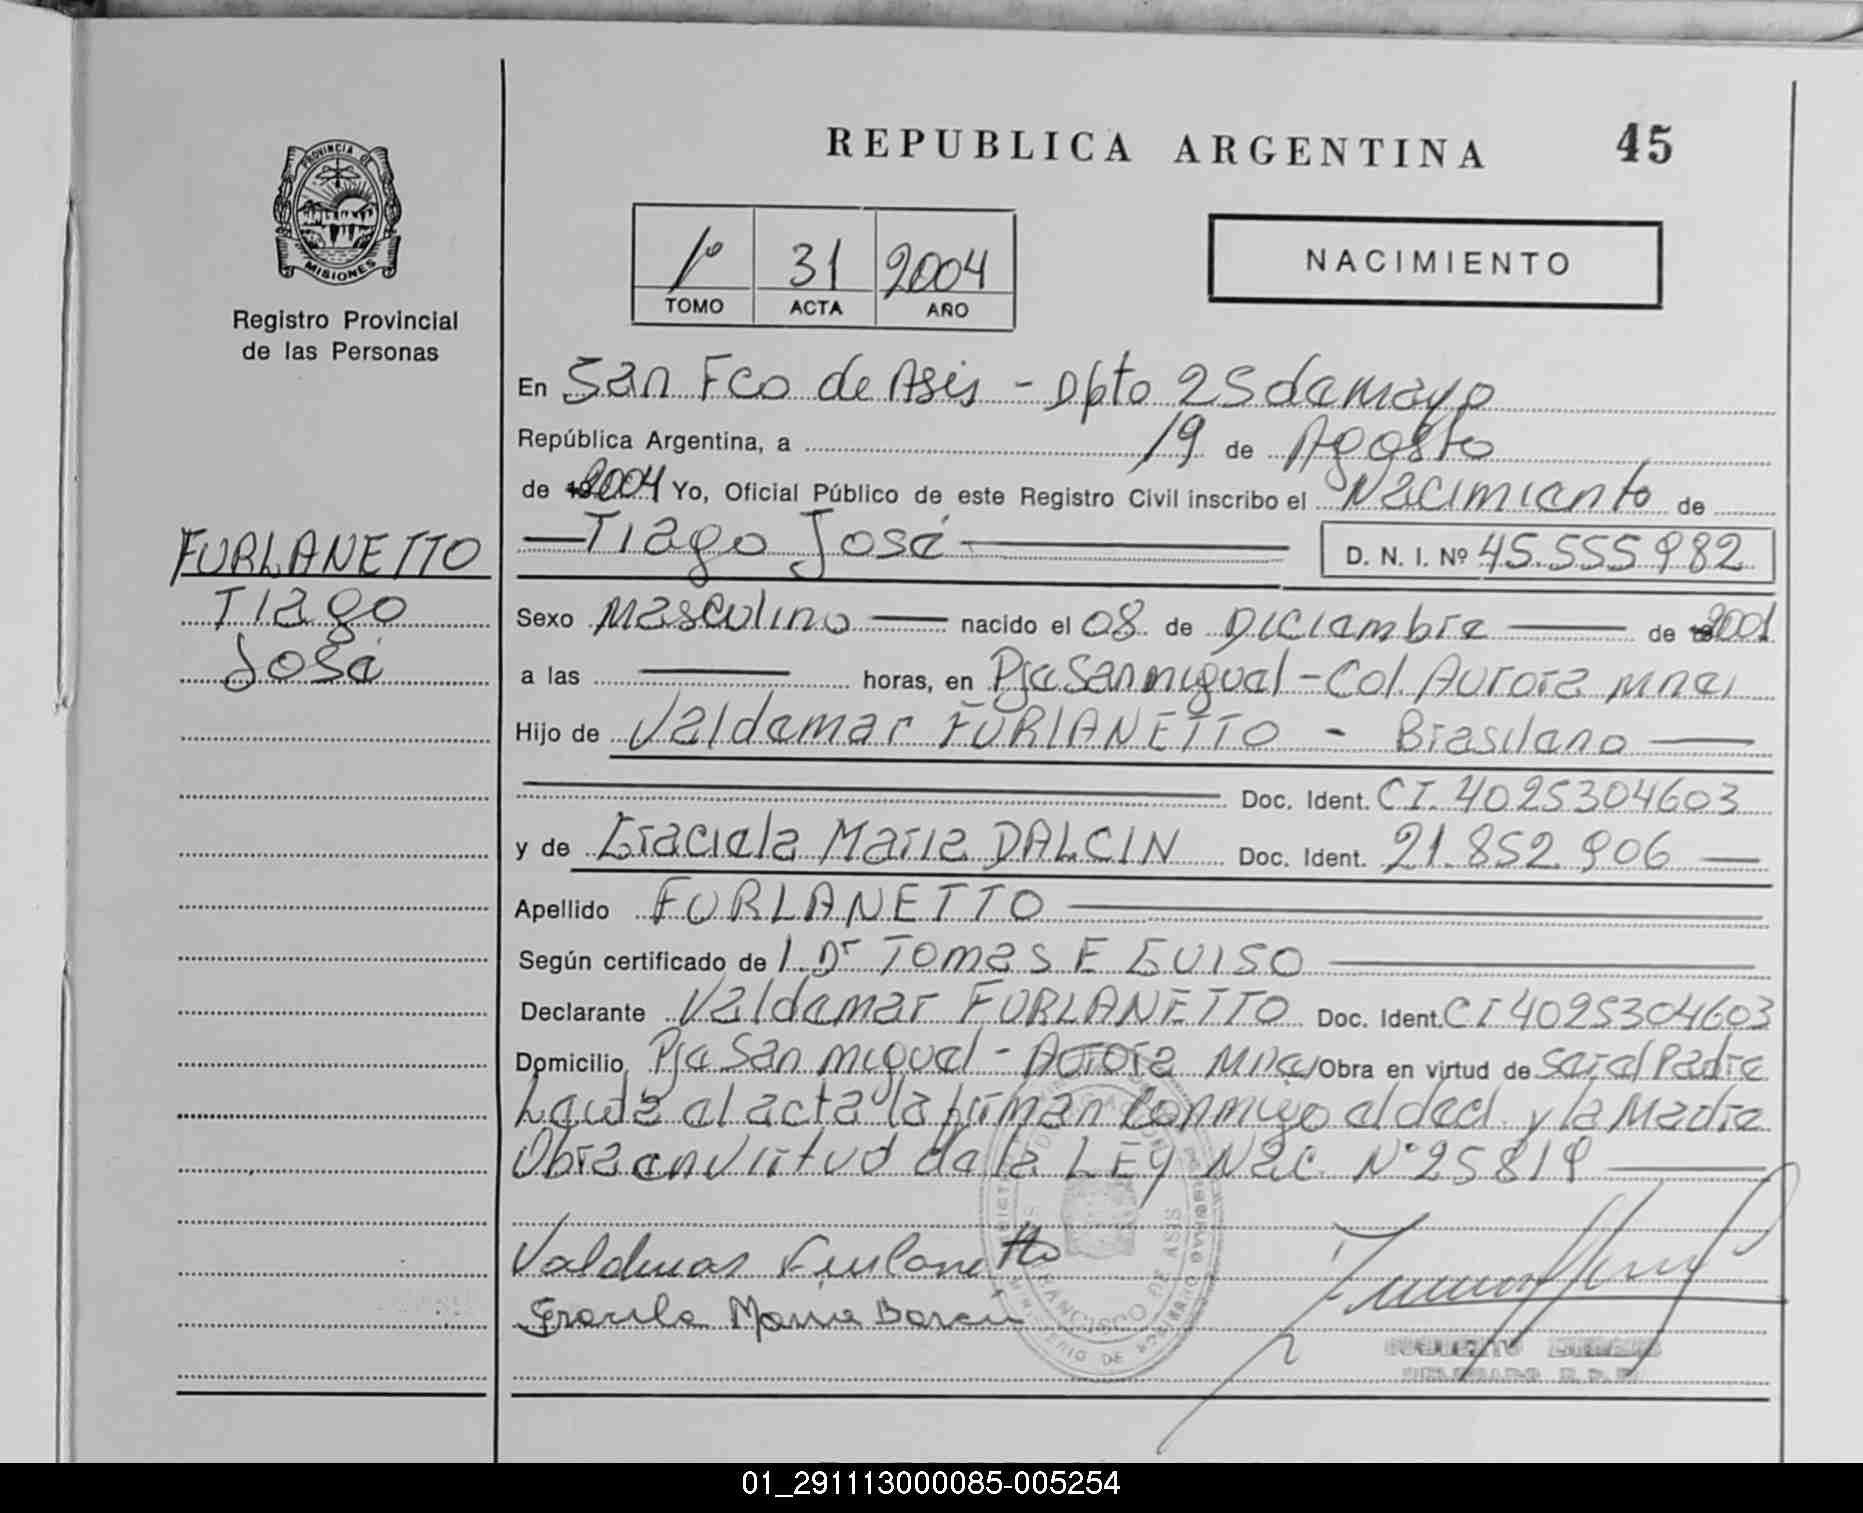 PROVINCIA DE
MISIONES
Registro Provincial
de las Personas
FURLANETTO
Tiago
José
REPUBLICA ARGENTINA 45
1º 31 2004
TOMO ACTA AÑO
NACIMIENTO
En San Fco de Asis - Dpto 25 de mayo
República Argentina, a 19 de Agosto
de 2004 Yo, Oficial Público de este Registro Civil inscribo el Nacimiento de
Tiago José D. N. I. Nº 45.555.982
Sexo Masculino nacido el 08 de Diciembre de 2001
a las horas, en Pje San miguel - Col. Aurora Mnes
Hijo de Valdemar FURLANETTO - Brasilero
Doc. Ident. CI. 4025304603
y de Graciela Maria DALCIN Doc. Ident. 21.852.906
Apellido FURLANETTO
Según certificado de l. Dr Tomas E GUISO
Declarante Valdemar FURLANETTO Doc. Ident. CI 4025304603
Domicilio Pje San miguel - Aurora Mnes Obra en virtud de ser el Padre
Leida el acta la firman conmigo el decl. y la Madre
Obra en virtud de la LEY Nac. Nº 25819
Valdemar Furlanetto
Graciela Maria
FRANCISCO DE ASIS
MINISTERIO DE
01_291113000085-005254